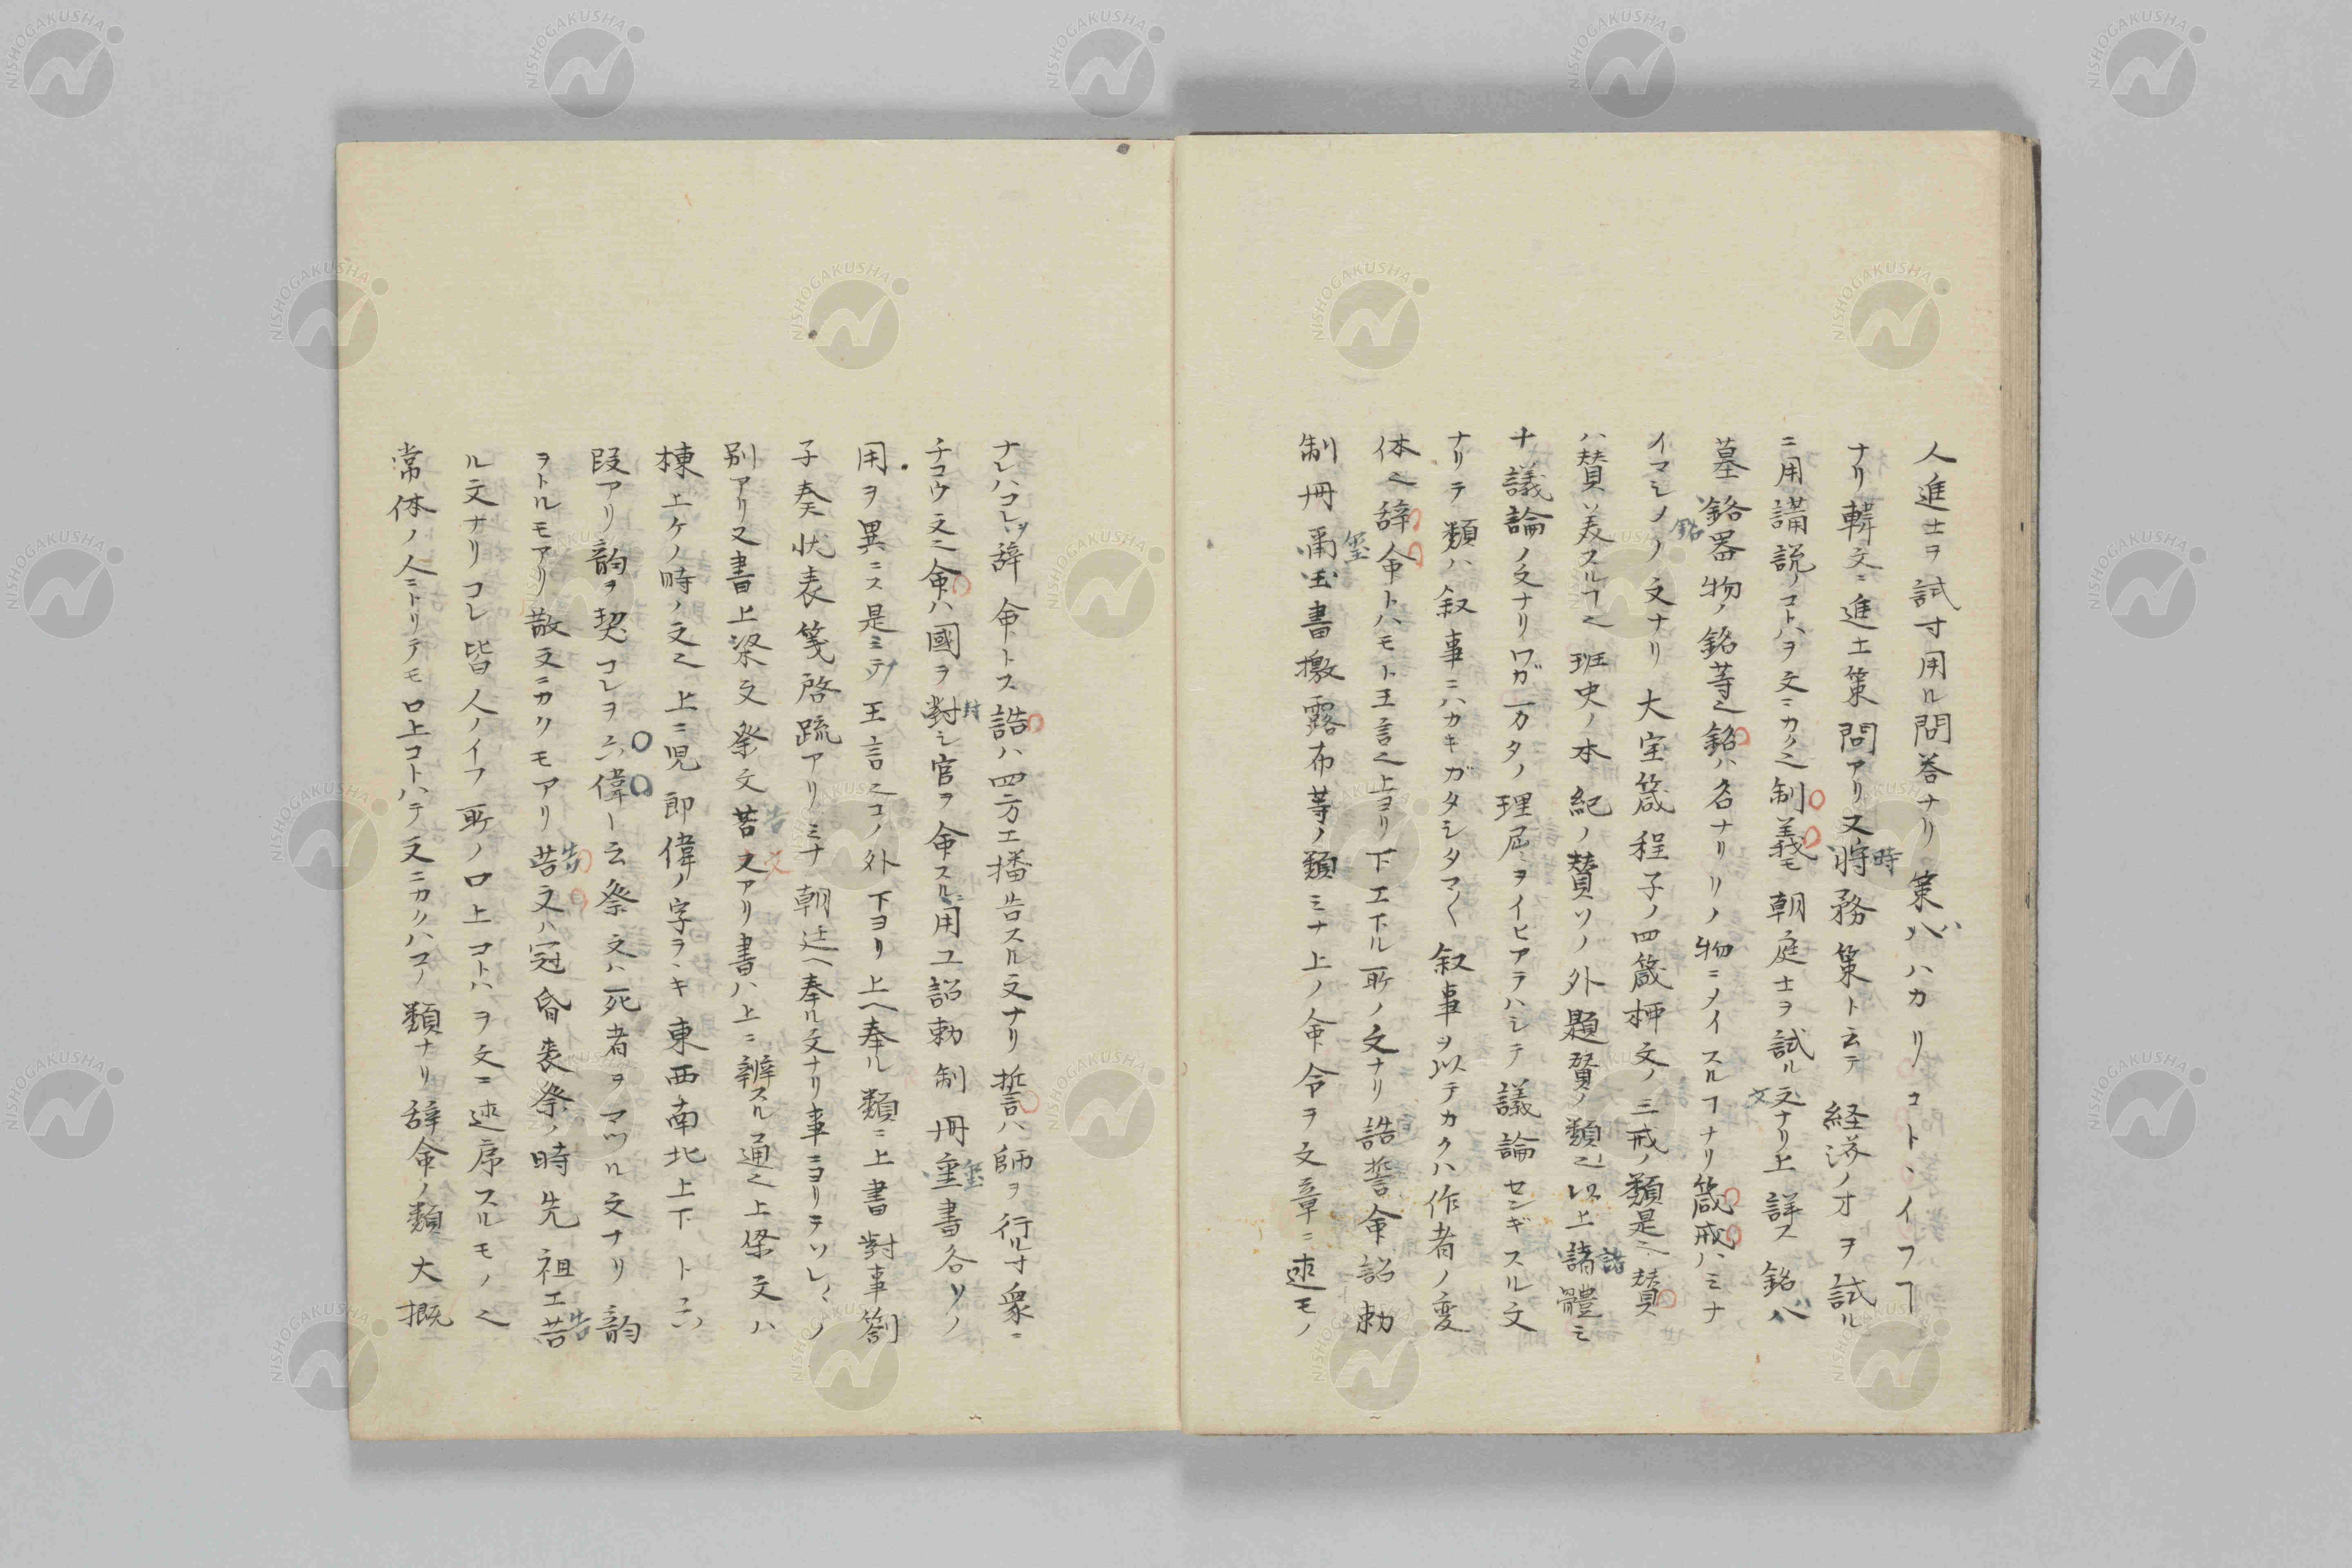 人進士ヲ試寸用ル問答ナリ策ハハカリコトヽイフヿ
ナリ韓文ニ進士策問アリ又将務策ト云テ経済ノオヲ試ル
時
ニ用講説ノコトハヲ文ニカク之制義モ朝庭士ヲ試ル文ナリ上詳ス銘ハ
文
墓銘器物ノ銘等之銘ハ名ナリソノ物ニメイスルヿナリ箴戒ハミナ
銘
イマシメノ文ナリ大宝箴程子ノ四箴柳文ノ三戒ノ類是之賛
ハ賛美スルヿ之班史ノ本紀ノ賛ソノ外題賛ノ類之以上諸體ミ
諸
ナ議論ノ文ナリワガ一カタノ理屈ヲイヒアラハシテ議論センギスル文
ナリテ類ハ叙事ニハカキガタシタマ〱叙事ヲ以テカクハ作者ノ変
体之辞命トハモト王言之上ヨリ下エ下ル所ノ文ナリ誥誓命詔勅
璽
制冊璽書檄露布等ノ類ミナ上ノ命令ヲ文章ニ述モノ
ナレハコレヲ辞命トス誥ハ四方エ播告スル文ナリ誓ハ師ヲ行ル寸衆ニ
チコウ文之命ハ國ヲ對シ官ヲ命スル用ユ詔勅制冊璽書各ソノ
封
璽
用ヲ異ニス是ミナ王言之コノ外下ヨリ上ヘ奉ル類ニ上書對事劄
子奏状表箋啓疏アリミナ朝廷ヘ奉ル文ナリ事ニヨリテソレ〱ノ
別アリ又書上梁文祭文告文アリ書ハ上ニ辨スル通之上梁文ハ
告
文
棟上ケノ時ノ文之上ニ児郎偉ノ字ヲヽキ東西南北上下ト云
段アリ韵ヲ契コレヲ六偉ト云祭文ハ死者ヲマツル文ナリ韵
ヲトルモアリ散文ニカクモアリ告文ハ冠昏喪祭ノ時先祖エ告
告
告
ル文ナリコレ皆人ノイフ所ノ口上コトハヲ文ニ述序スルモノ之
常体ノ人ニトリテモ口上コトハテ文ニカクハコノ類ナリ辞命ノ類大概